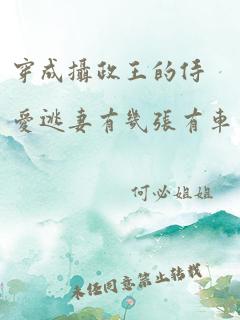 穿成攝政王的侍
愛逃妻有幾張有車
何必姐姐
未经同意禁止转载